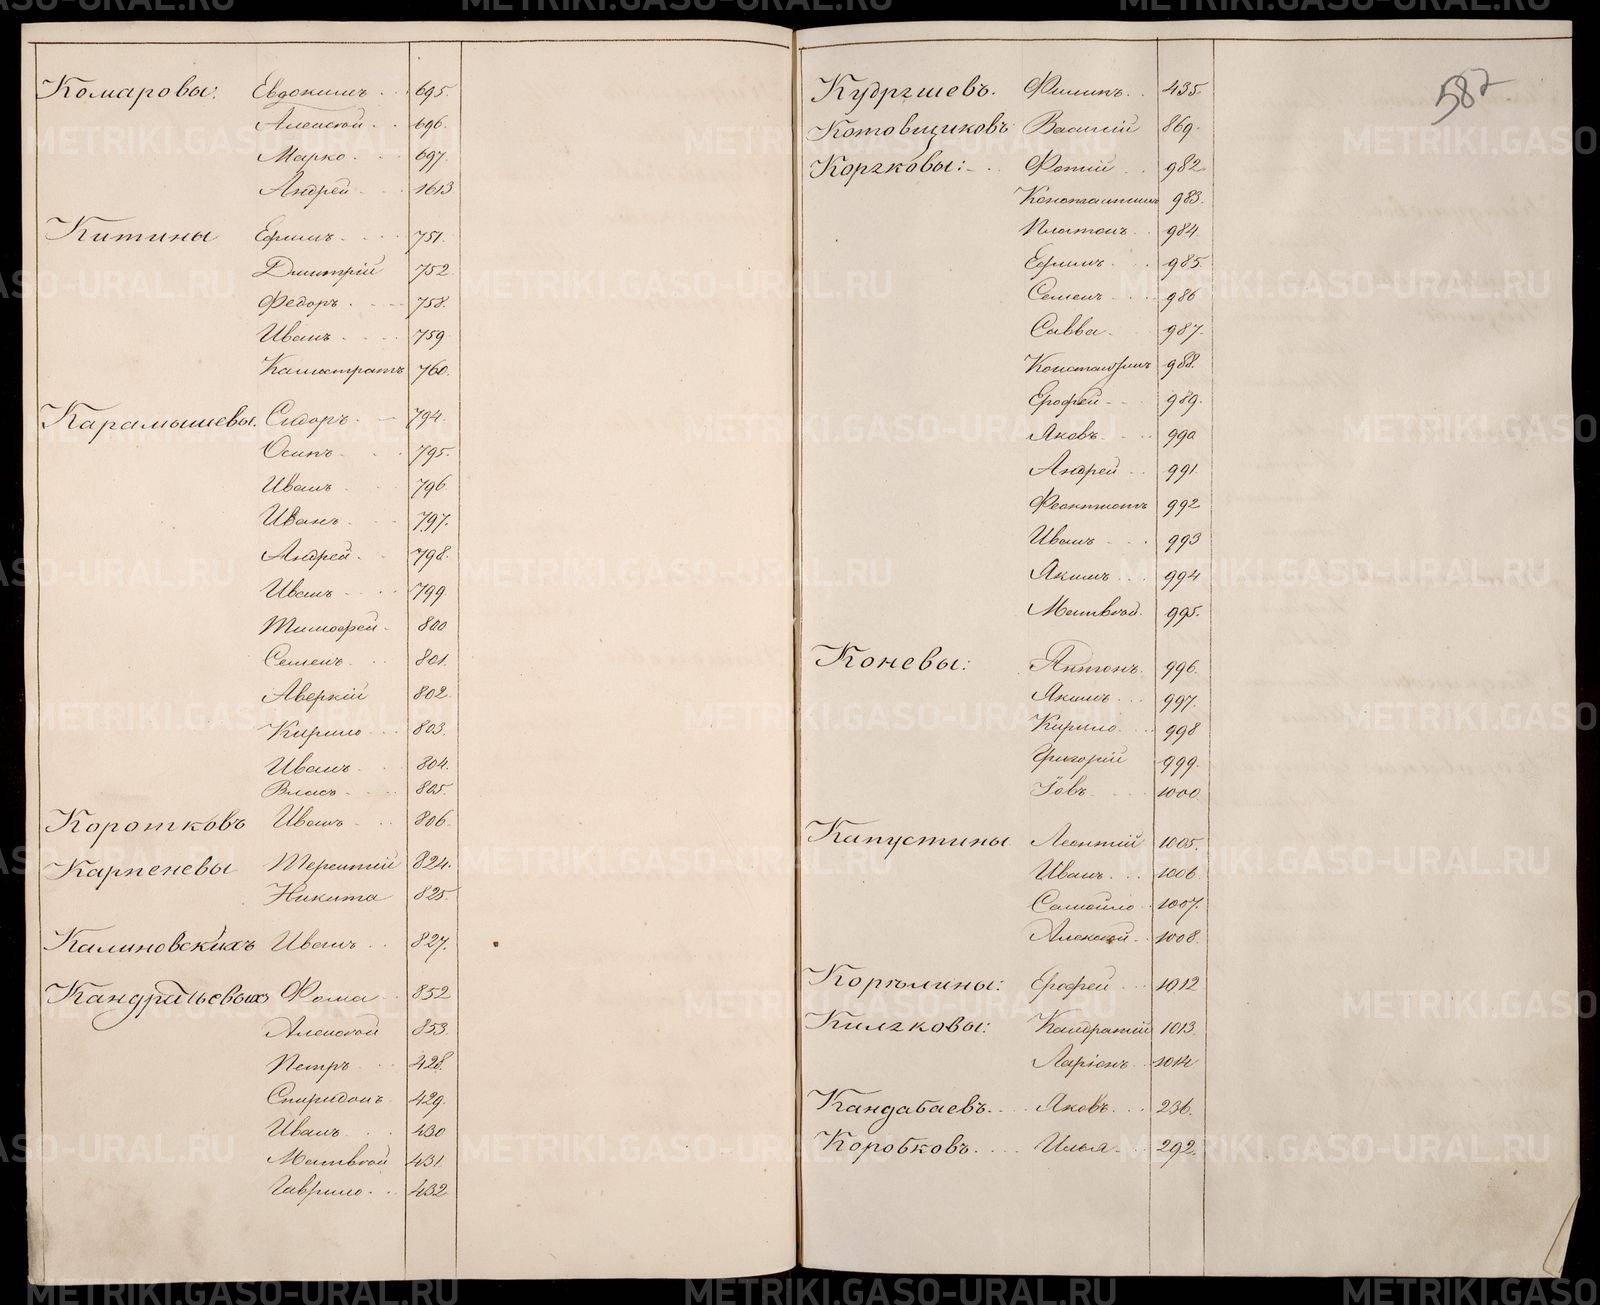 Комаровы: Евдокимъ 695.
Алексѣй 696.
Марко 697.
Андрей 1613
Китины Ефимъ 751.
Дмитрій 752.
Федоръ 758.
Иванъ 759
Калистратъ 760.
Карамышевы. Сидоръ 794.
Осипъ 795.
Иванъ 796
Иванъ 797.
Андрей 798.
Иванъ 799
Тимофей 800
Семенъ 801.
Аверкій 802.
Кирило 803.
Иванъ 804.
Власъ 805.
Коротковъ Иванъ 806.
Карпеневы Терентій 824.
Никита 825.
Калиновскихъ Иванъ 827.
Фома 852
Алексѣй 853
Петръ 428.
Спиридонъ 429.
Иванъ 430
Матвѣй 431.
Гаврило 432
587
Кудряшевъ. Филипъ 435.
Котовщиковъ Василій 869.
Коряковы: Фотій 982
Константинъ 983.
Платонъ 984
Ефимъ 985.
Семенъ 986
Савва 987.
Константинъ 988.
Ерофей 989.
Яковъ 990
Андрей 991
Феоктистъ 992
Иванъ 993
Якимъ 994
Матвѣй 995.
Коневы: Антонъ 996.
Якимъ 997.
Кирило 998
Григорій 999.
Іовъ 1000
Капустины Леонтій 1005.
Иванъ 1006
Самойло 1007.
Алексѣй 1008.
Ерофей 1012
Киляковы: Кандратій 1013
Ларіонъ 1014
Кандабаевъ Яковъ 236.
Коробковъ Илья 292.
METRIKI.GASO-URAL.RU